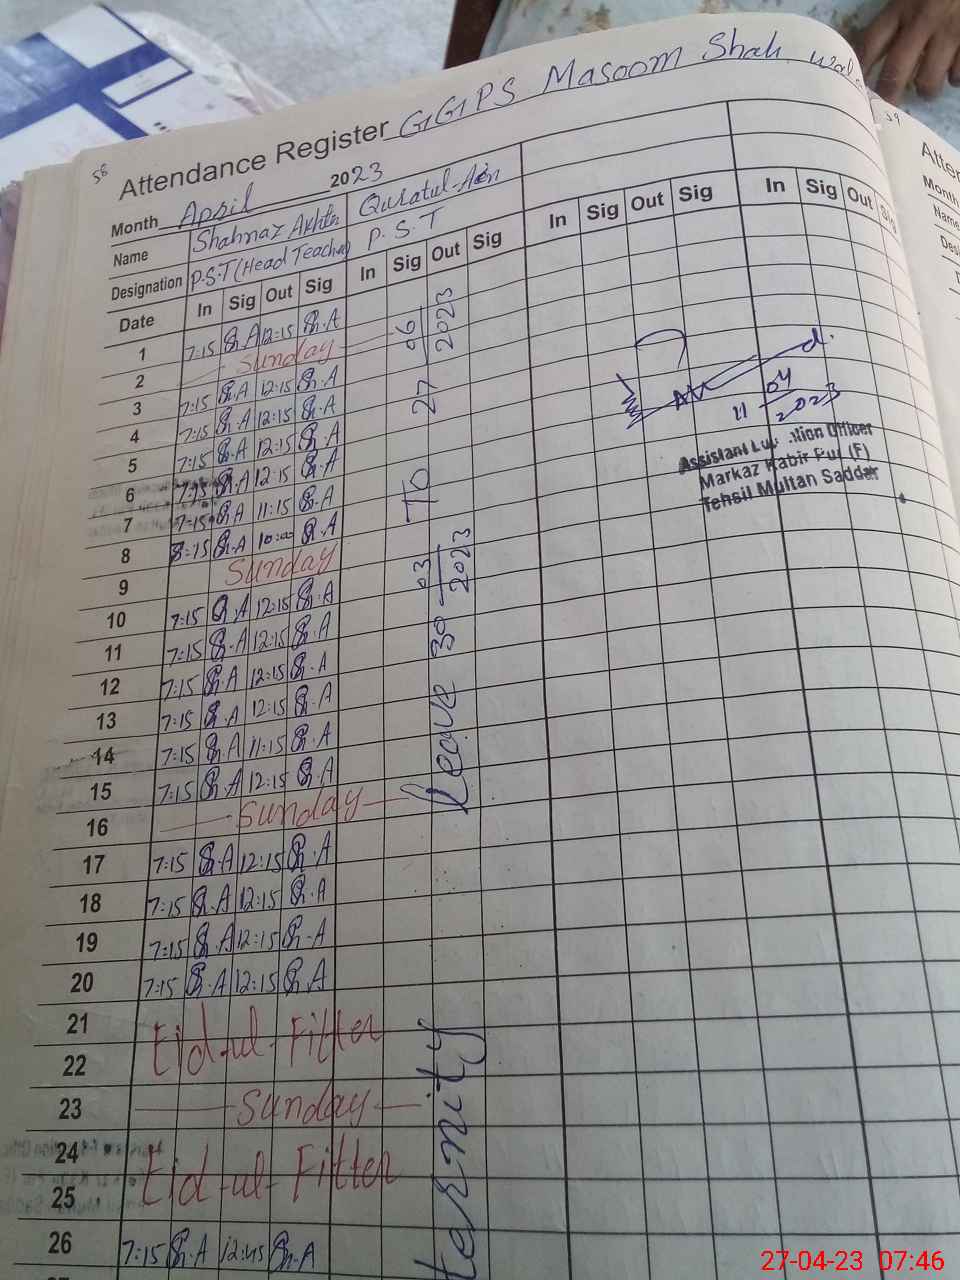 58
Attendance Register GGPS Masoom Shah
Month April 2023
Name Shahnaz Akhtr Quratul-Ain
Designation P.S.T (Head Teacher) P.S.T
Date In Sig Out Sig In Sig Out Sig In Sig Out Sig In Sig Out
1 7:15 Sh.A 12:15 Sh.A
2 Sunday
3 7:15 Sh.A 12:15 Sh.A
4 7:15 Sh.A 12:15 Sh.A
5 7:15 Sh.A 12:15 Sh.A
6 7:15 Sh.A 12:15 Sh.A
7 7:15 Sh.A 11:15 Sh.A
8 8:15 Sh.A 10:00 Sh.A
9 Sunday
10 7:15 Sh.A 12:15 Sh.A
11 7:15 Sh.A 12:15 Sh.A
12 7:15 Sh.A 12:15 Sh.A
13 7:15 Sh.A 12:15 Sh.A
14 7:15 Sh.A 11:15 Sh.A
15 7:15 Sh.A 12:15 Sh.A
16 Sunday
17 7:15 Sh.A 12:15 Sh.A
18 7:15 Sh.A 12:15 Sh.A
19 7:15 Sh.A 12:15 Sh.A
20 7:15 Sh.A 12:15 Sh.A
21
22 Eid-ul-Fitter
23 Sunday
24
25 Eid-ul-Fitter
26 7:15 Sh.A 12:45 Sh.A
ternity leave 30 03/2023 To 27 06/2023
11 04/2023
Assistant
Markaz Kabir Pur (F)
Tehsil Multan Saddar
59
Month
27-04-23 07:46